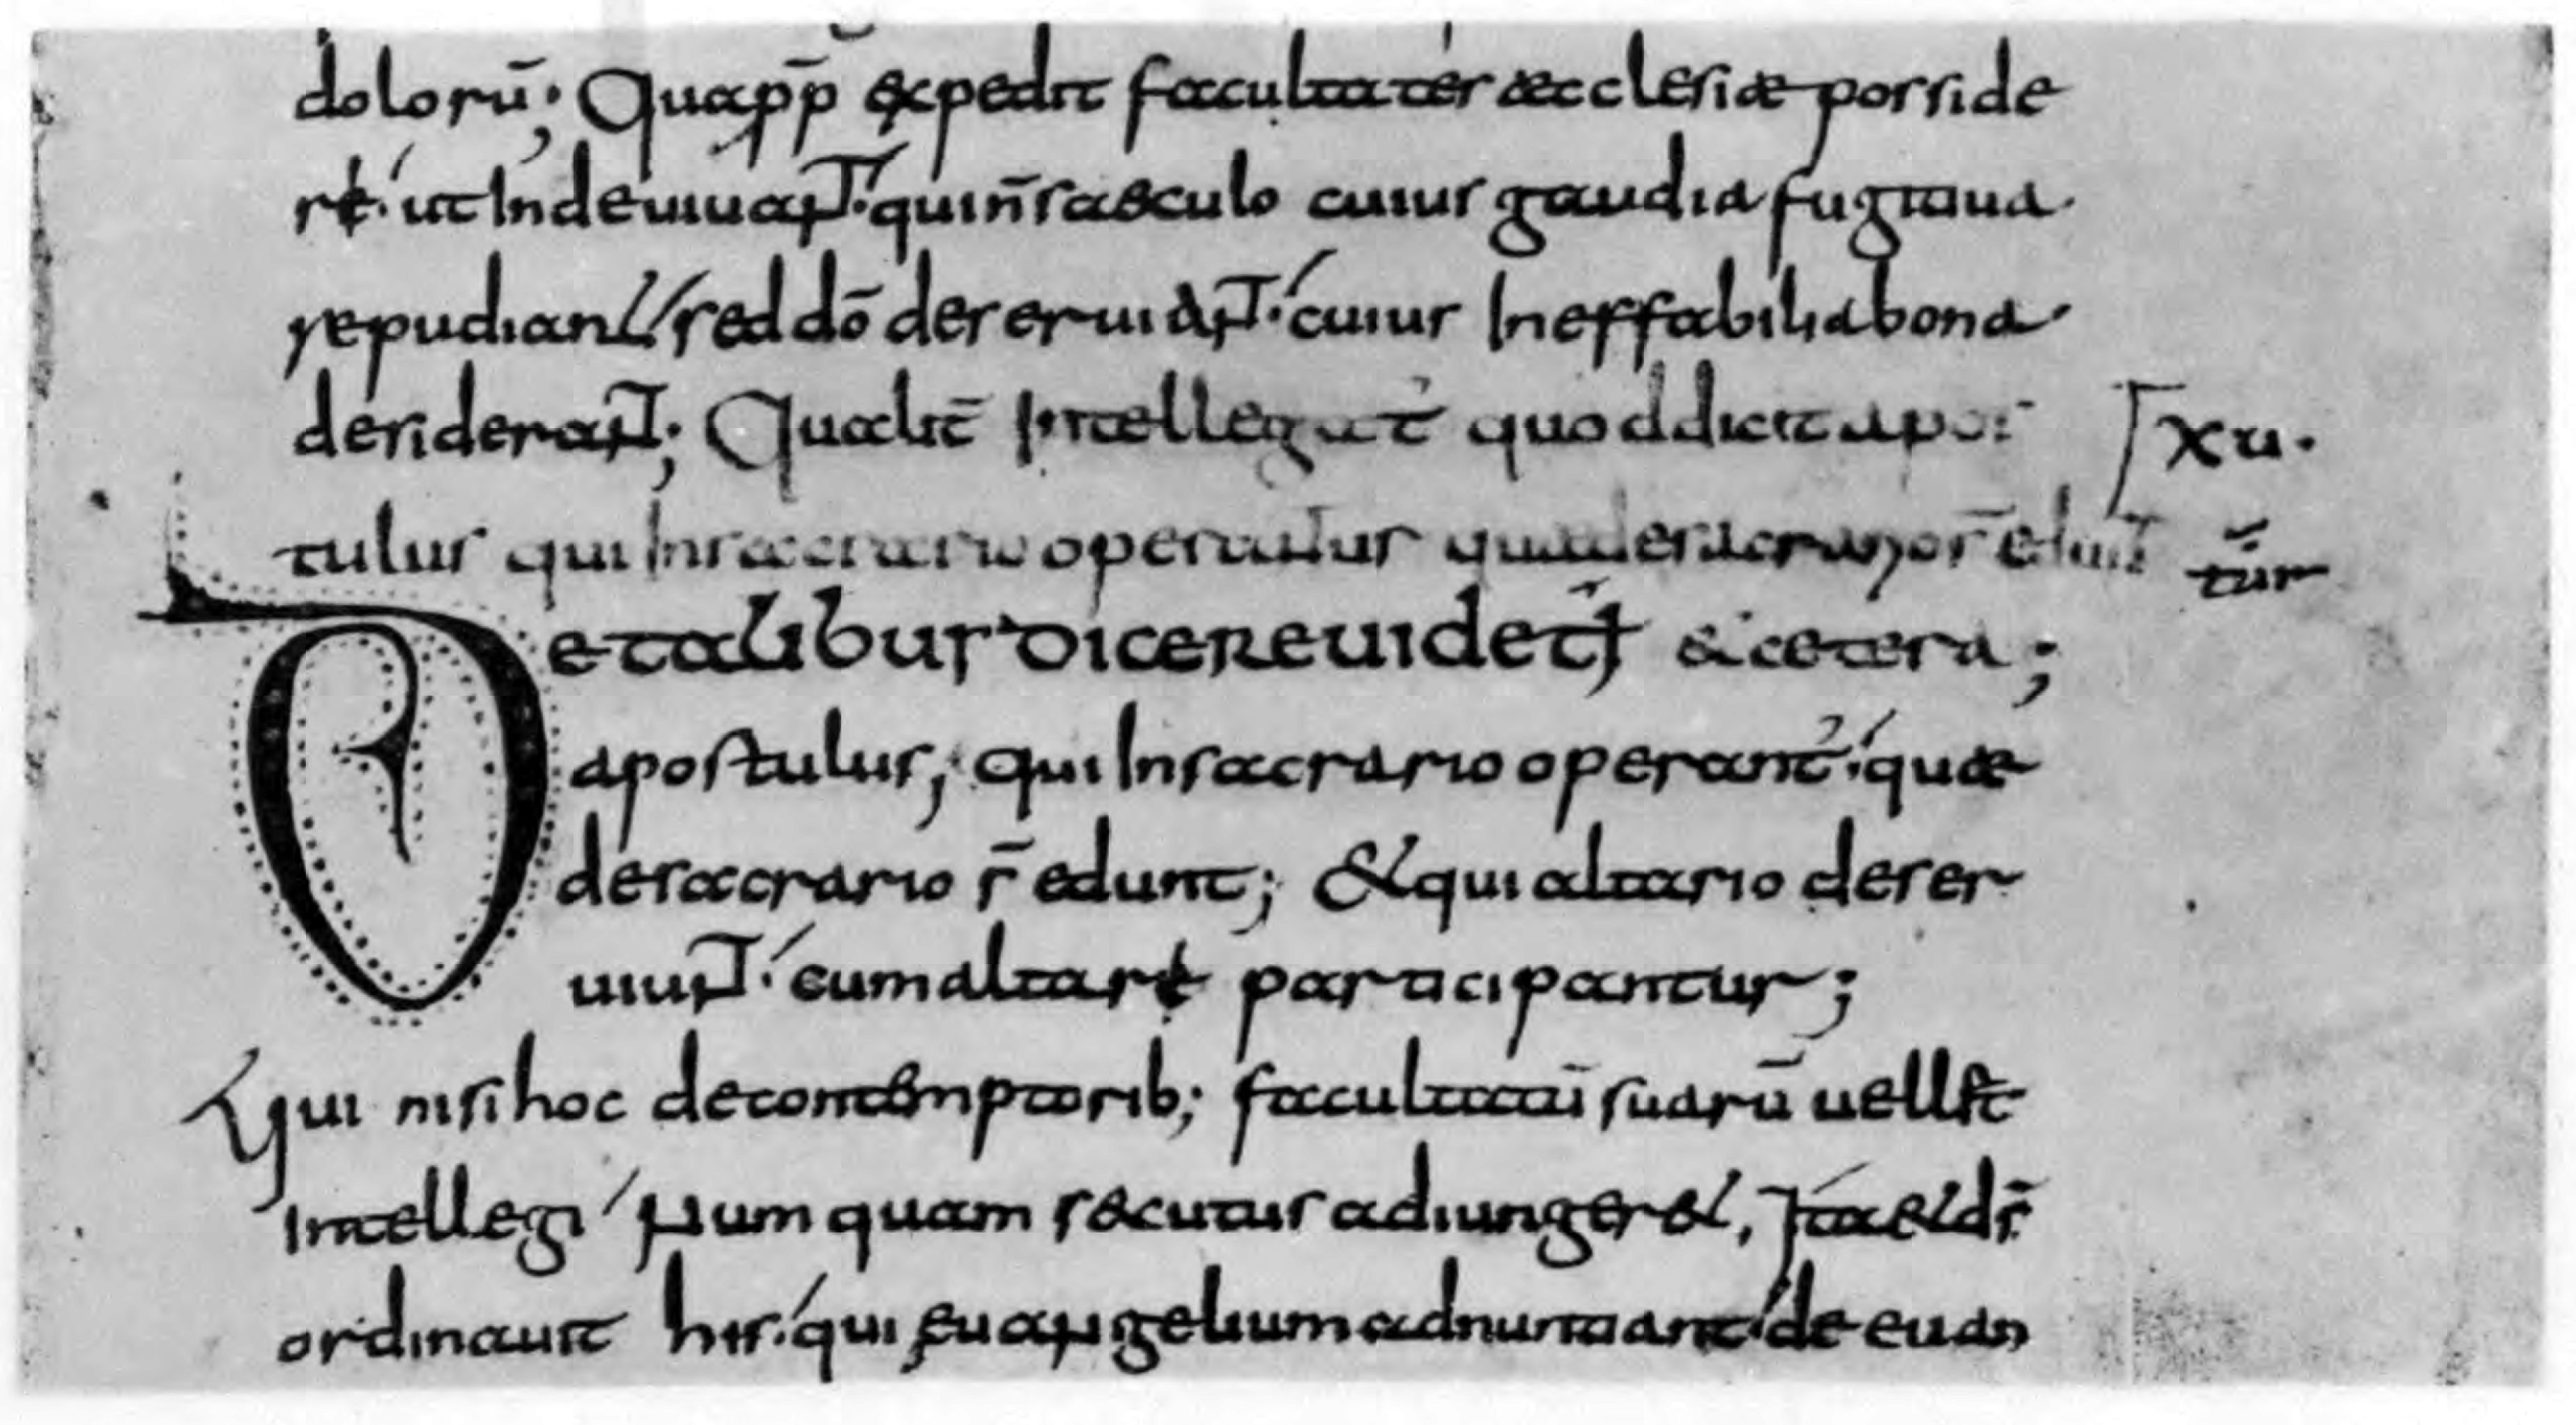 dolorū; Quapp̄ expedit facultates aecclesiae posside
re· ut Inde uiuant· qui nr̄ saeculo cuius gaudia fugitiua·
repudiant sed dō deseruiant· cuius Ineffabilia bona·
desiderant; Qualit̄ Intellegat̄ quod dicit apos xu·
tulus qui In sacrario operantur quae de sacrario s̄ edunt
tur
De talibus dicere uidetur & cetera;
apostulus; qui In sacrario operant̄· quae
de sacrario s̄ edunt; & qui altario deser
uiunt· cum altare participantur;
Qui nisi hoc de contemptorib; facultatū suarū uellet
Intellegi numquam secutus adiungeret, Ita et dn̄s
ordinauit his· qui euangelium adnuntiant de euan